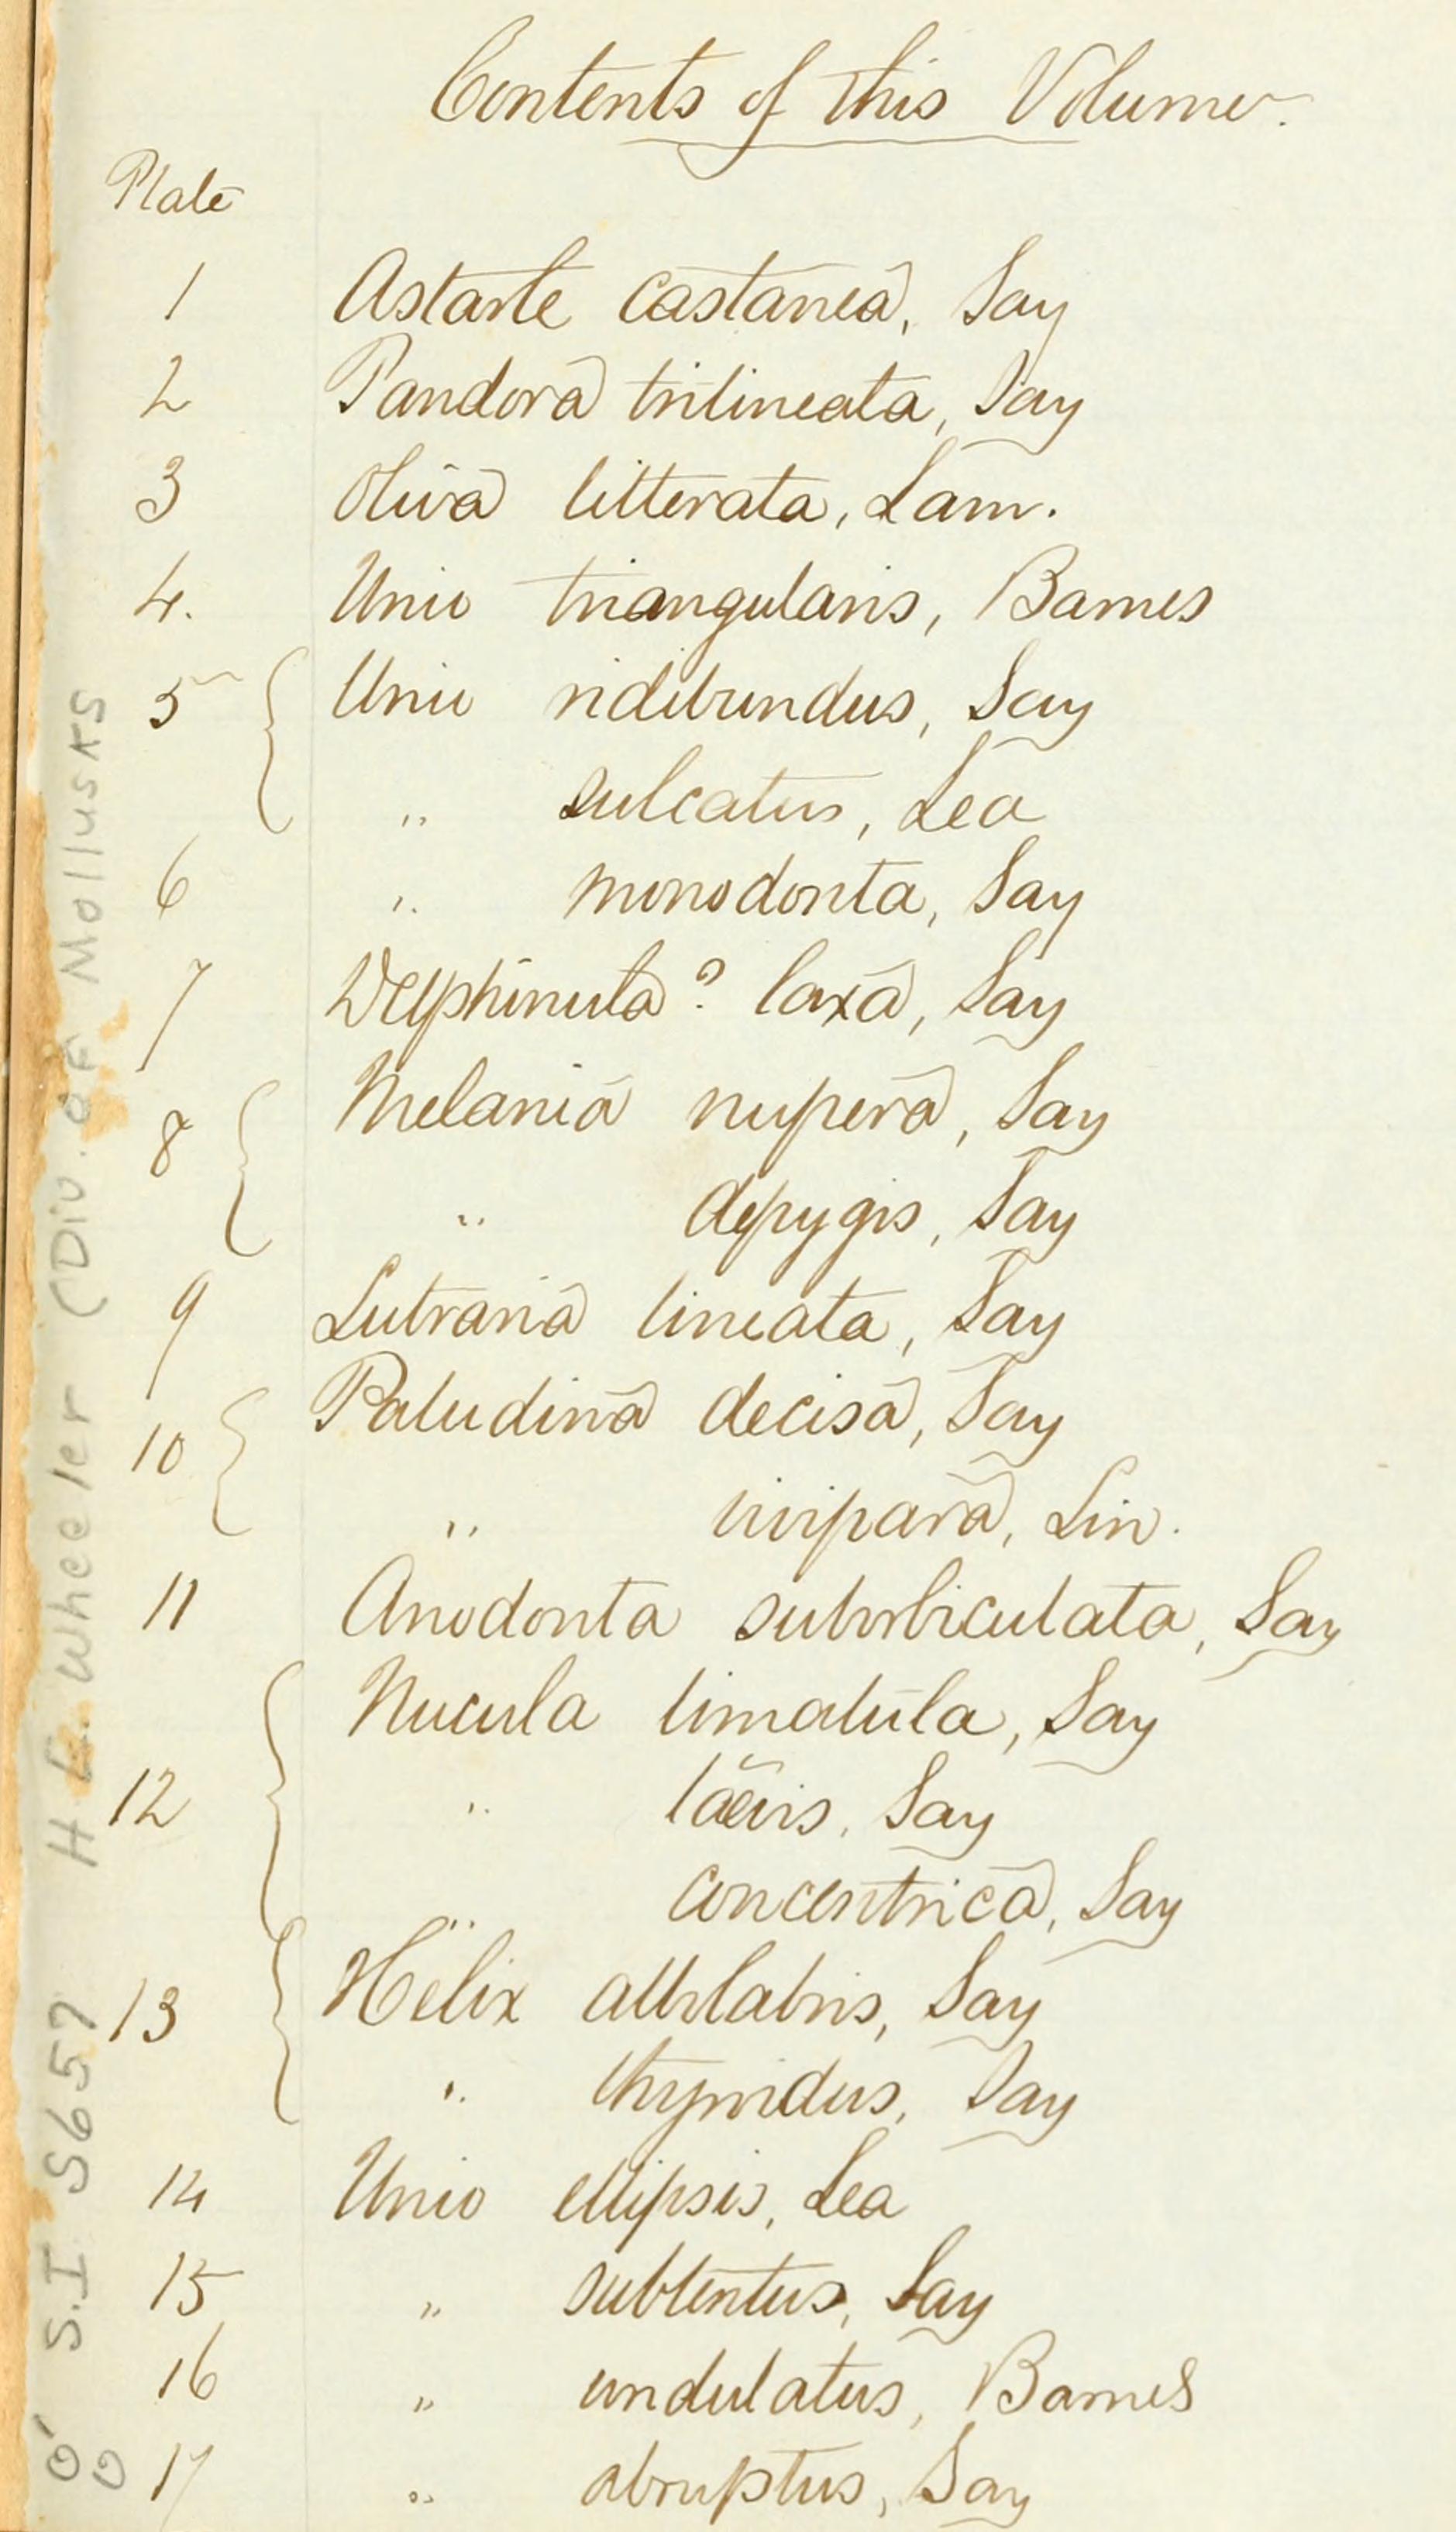 Contents of this Volume.
Plate
1 Astarte castanea, Say
2 Pandora trilineata, Say
3 Oliva litterata, Lam.
4. Unio triangularis, Barnes
5 { Unio ridibundus, Say
" sulcatus, Lea
6 " monodonta, Say
7 Delphinula? laxa, Say
8 { Melania nupera, Say
" depygis, Say
9 Lutraria lineata, Say
10 { Paludina decisa, Say
" vivipara, Lin.
11 Anodonta suborbiculata, Say
{ Nucula limatula, Say
12 " laevis, Say
" concentrica, Say
13 { Helix albolabris, Say
" thyroidus, Say
14 Unio ellipsis, Lea
15 " subtentus, Say
16 " undulatus, Barnes
17 " abruptus, Say
S.I S657 H E. Wheeler (Div. of Mollusks